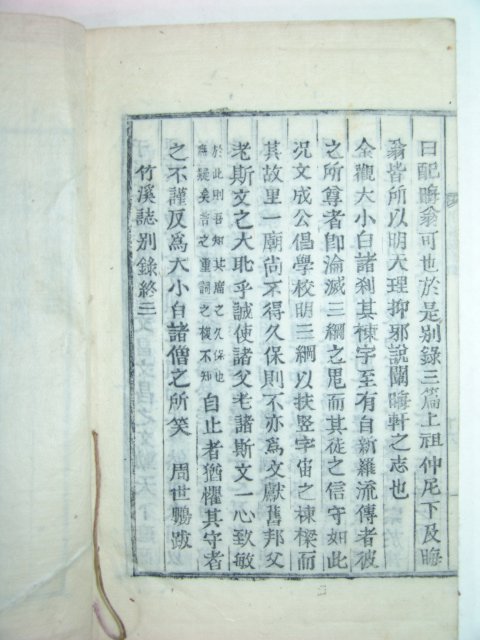 曰配晦翁可也於是別錄三篇上祖仲尼下及晦
翁皆所以明大理抑邪說闡晦軒之志也
余觀大小白諸刹其棟宇至有自新羅流傳者彼
之所尊者卽淪滅三綱之鬼而其徒之信守如此
况文成公倡學校明三綱以扶竪宇宙之棟樑而
其故里一廟尙不得久保則不亦爲文獻舊邦父
老斯文之大耻乎誠使諸父老諸斯文一心致敏
於此則吾知其廟之久保也
無疑矣吾之重詞之複不知
自止者猶懼其守者
之不謹反爲大小白諸僧之所笑 周世鵬跋
竹溪誌別錄終三